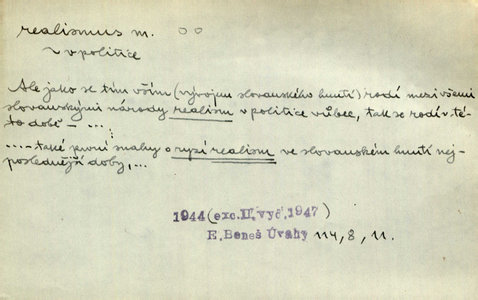 realismus m. OO
~ v politice
Ale jako se tím vším (vývojem slovanského hnutí) rodí mezi všemi
slovanskými národy realism v politice vůbec, tak se rodí v té-
to době - ...
...- také první snahy o ryzí realism ve slovanském hnutí nej-
poslednější doby, ...
1944 (exc. II. vyč. 1947)
E. Beneš Úvahy 114, 8, 11.